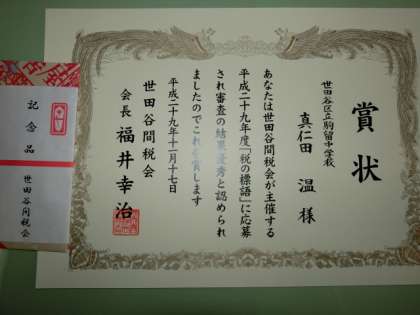 賞状
世田谷区立駒留中学校
真仁田 温 様
あなたは世田谷間税会が主催する
平成二十九年度「税の標語」に応募
され審査の結果優秀と認められ
ましたのでこれを賞します
平成二十九年十一月十七日
世田谷間税会
会長 福井幸治
記念品
世田谷間税会